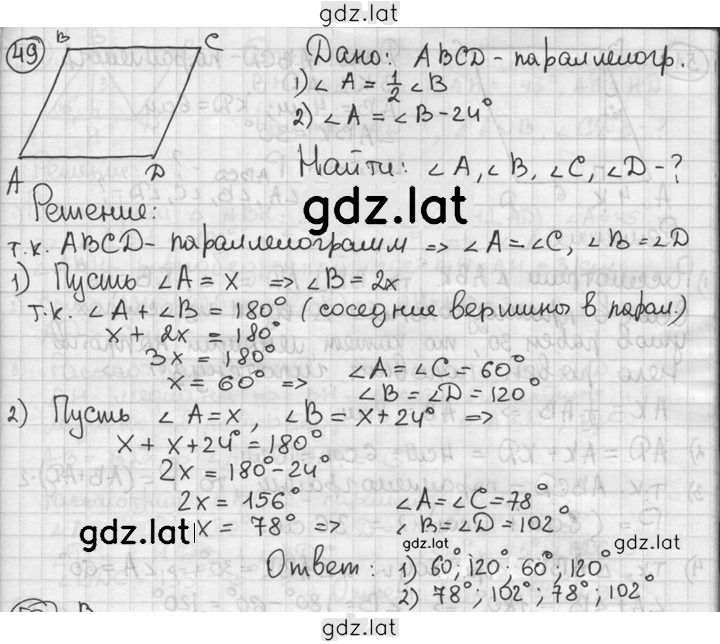 gdz.lat
49 B C Дано: ABCD - параллелогр.
1) ∠A = 1/2 ∠B
2) ∠A = ∠B - 24°
A D Найти: ∠A, ∠B, ∠C, ∠D - ?
gdz.lat
Решение:
т.к. ABCD - параллелограмм => ∠A = ∠C, ∠B = ∠D
1) Пусть ∠A = x => ∠B = 2x
т.к. ∠A + ∠B = 180° (соседние вершины в парал.)
x + 2x = 180°
3x = 180°
x = 60° => ∠A = ∠C = 60°
∠B = ∠D = 120°
2) Пусть ∠A = x, ∠B = x + 24° =>
x + x + 24° = 180°
2x = 180° - 24°
2x = 156° ∠A = ∠C = 78°
x = 78° => ∠B = ∠D = 102°
gdz.lat
gdz.lat gdz.lat
Ответ: 1) 60°; 120°; 60°; 120°
2) 78°; 102°; 78°; 102°
gdz.lat